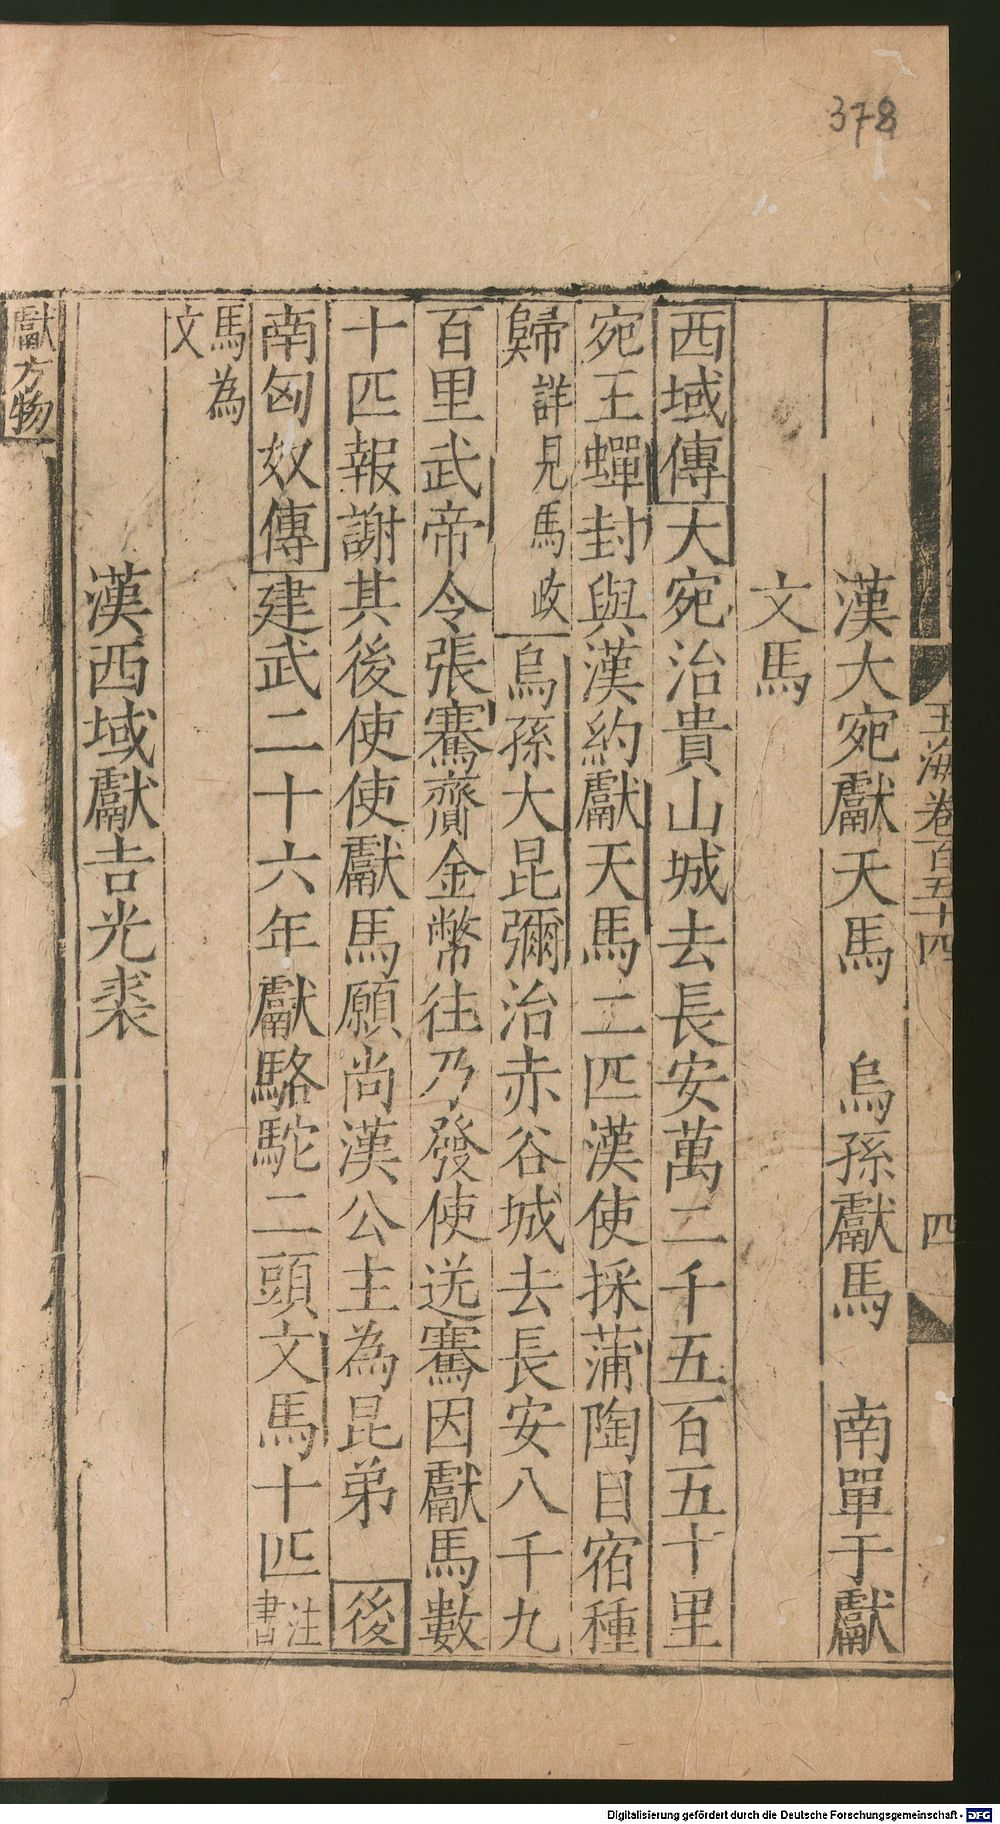 378
玉海卷百五十四
四
漢大宛獻天馬　烏孫獻馬　南單于獻
文馬
西域傳大宛治貴山城去長安萬二千五百五十里
宛王蟬封與漢約獻天馬二匹漢使採蒲陶目宿種
歸詳見馬政烏孫大昆彌治赤谷城去長安八千九
百里武帝令張騫齎金幣往乃發使送騫因獻馬數
十匹報謝其後使使獻馬願尚漢公主為昆弟　後
南匈奴傳建武二十六年獻駱駝二頭文馬十匹注書
馬為文
漢西域獻吉光裘
獻方物
Digitalisierung gefördert durch die Deutsche Forschungsgemeinschaft - DFG